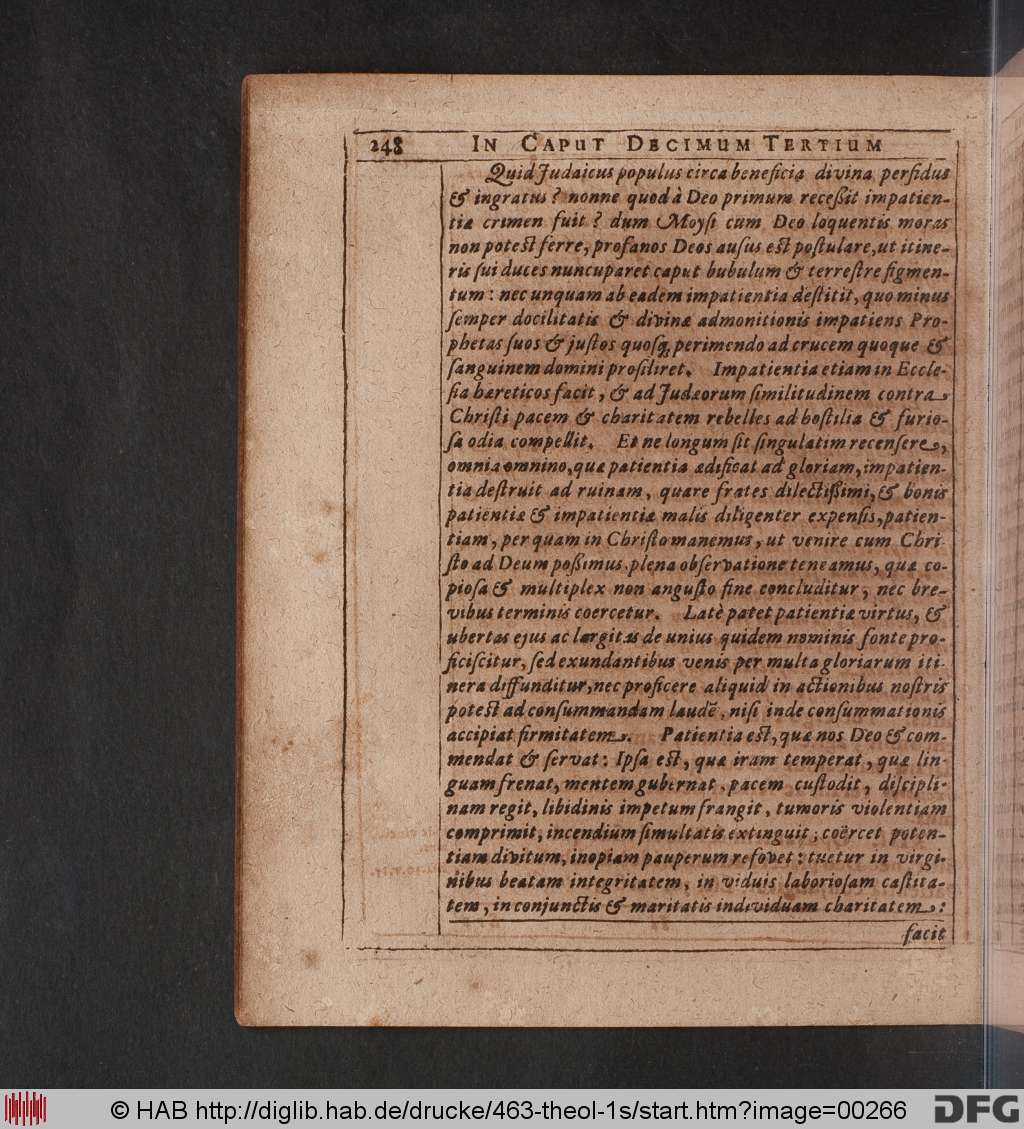 248 IN CAPUT DECIMUM TERTIUM
Quid Judaicus populus circa beneficia divina perfidus
& ingratus? nonne quod à Deo primum receßit impatien-
tiæ crimen fuit? dum Moysi cum Deo loquentis moras
non potest ferre, profanos Deos ausus est postulare, ut itine-
ris sui duces nuncuparet caput bubulum & terrestre figmen-
tum: nec unquam ab eadem impatientia destitit, quo minus
semper docilitatis & divinæ admonitionis impatiens Pro-
phetas suos & justos quosq; perimendo ad crucem quoque &
sanguinem domini prosiliret. Impatientia etiam in Eccle-
sia hæreticos facit, & ad Judæorum similitudinem contra
Christi pacem & charitatem rebelles ad hostilia & furio-
sa odia compellit. Et ne longum sit singulatim recensere,
omnia omnino, quæ patientia ædificat ad gloriam, impatien-
tia destruit ad ruinam, quare frates dilectißimi, & bonis
patientiæ & impatientiæ malis diligenter expensis, patien-
tiam, per quam in Christo manemus, ut venire cum Chri-
sto ad Deum poßimus, plena observatione teneamus, quæ co-
piosa & multiplex non angusto fine concluditur, nec bre-
vibus terminis coercetur. Latè patet patientiæ virtus, &
ubertas ejus ac largitas de unius quidem nominis fonte pro-
ficiscitur, sed exundantibus venis per multa gloriarum iti-
nera diffunditur, nec proficere aliquid in actionibus nostris
potest ad consummandam laudẽ, nisi inde consummationis
accipiat firmitatem. Patientia est, quæ nos Deo & com-
mendat & servat: Ipsa est, quæ iram temperat, quæ lin-
guam frenat, mentem gubernat, pacem custodit, discipli-
nam regit, libidinis impetum frangit, tumoris violentiam
comprimit, incendium simultatis extinguit; coërcet poten-
tiam divitum, inopiam pauperum refovet: tuetur in virgi-
nibus beatam integritatem, in viduis laboriosam castita-
tem, in conjunctis & maritatis individuam charitatem:
facit
© HAB http://diglib.hab.de/drucke/463-theol-1s/start.htm?image=00266
DFG